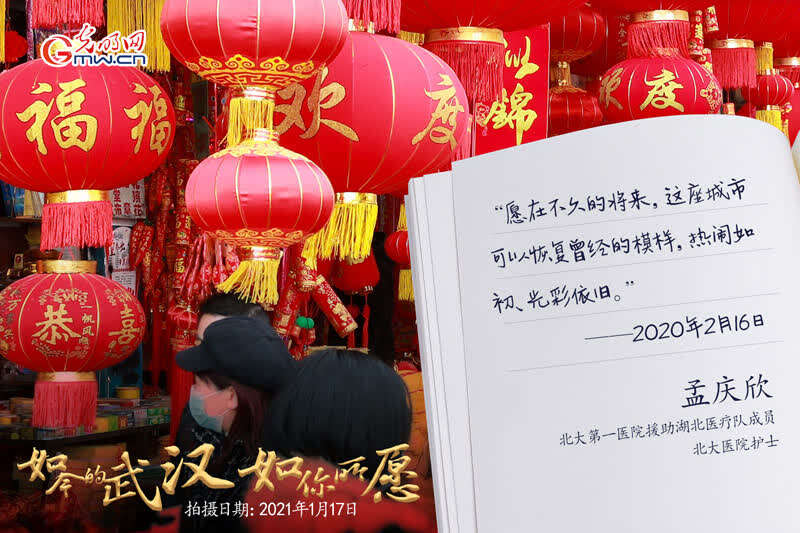 光明网
GMW.cn
福 福
欢 度
似锦
欢 度
恭 喜
一帆风顺
“愿在不久的将来，这座城市
可以恢复曾经的模样，热闹如
初、光彩依旧。”
——2020年2月16日
孟庆欣
北大第一医院援助湖北医疗队成员
北大医院护士
如今的武汉 如你所愿
拍摄日期：2021年1月17日